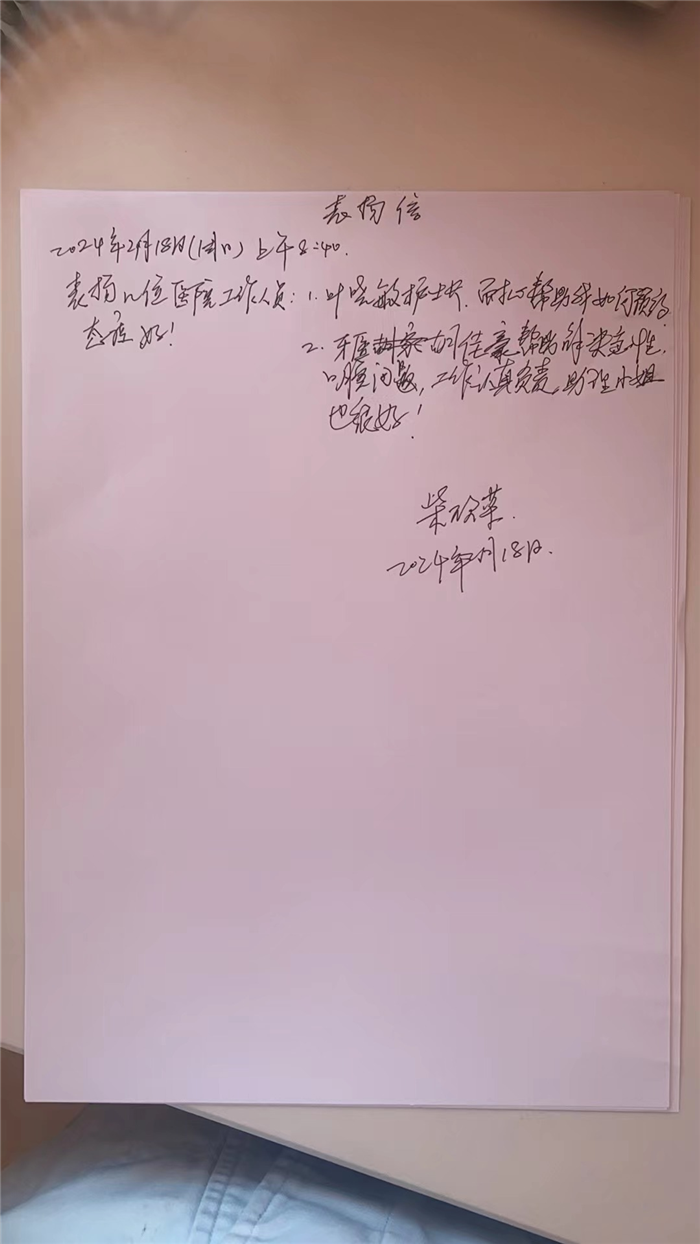 表扬信
2024年2月18日(周日)上午8:40.
表扬几位医院工作人员: 1. 叶晓敏护士, 耐心帮助我如何预约,
态度好!
2. 牙医胡佳豪帮助解决急性
口腔问题, 工作认真负责, 助理小姐
也很好!
柴
2024年2月18日.